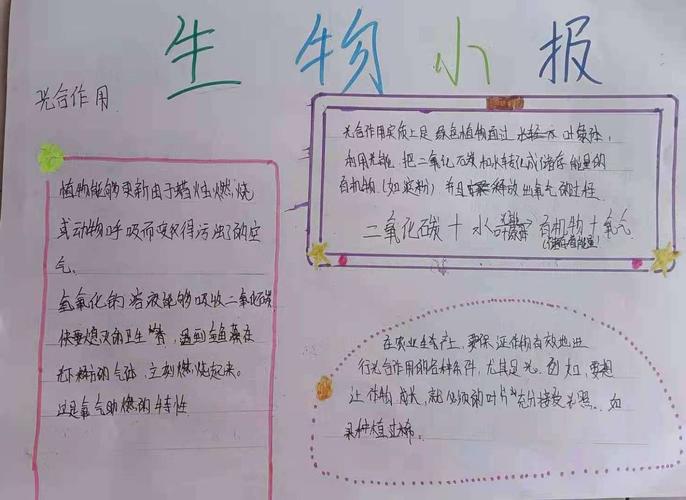 生物小报
光合作用
植物能够更新由于蜡烛燃烧
或动物呼吸而变得污浊了的空
气。
氢氧化钠溶液能够吸收二氧化碳
快要熄灭的卫生香,遇到金鱼藻在
光下释放的气体,立刻燃烧起来。
这是氧气助燃的特性
光合作用实质上是 绿色植物通过 叶绿体,
利用光能,把二氧化碳和水转化成储存能量的
有机物(如淀粉)并且释放出氧气的过程
二氧化碳 + 水 光能 叶绿体 有机物 + 氧气
(储存着能量)
在农业生产上,要保证作物有效地进
行光合作用的各种条件,尤其是光。例如,要想
让作物成长,就必须让叶片充分接受光照。如
果种植过稀。